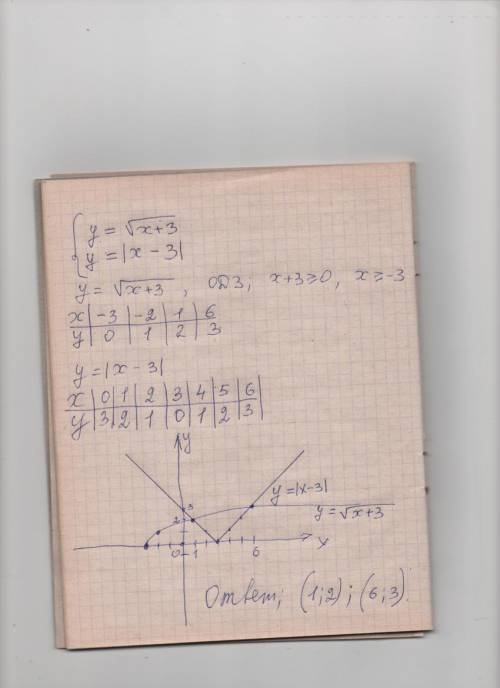 y = √x+3
y = |x − 3|
y = √x+3 , ОДЗ; x+3≥0, x≥−3
x|−3|−2|1|6
y|0|1|2|3
y = |x − 3|
x|0|1|2|3|4|5|6|
y|3|2|1|0|1|2|3|
y
3
y = |x−3|
2
y = √x+3
0 1 6 x
Ответ; (1;2); (6;3).